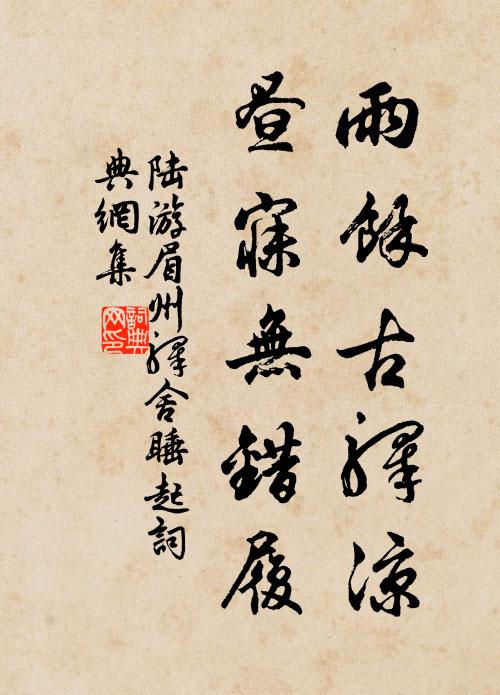 雨餘古驛凉
晝寐無錯履
陸游眉州驛舍睡起詞
典網集
詞典网印